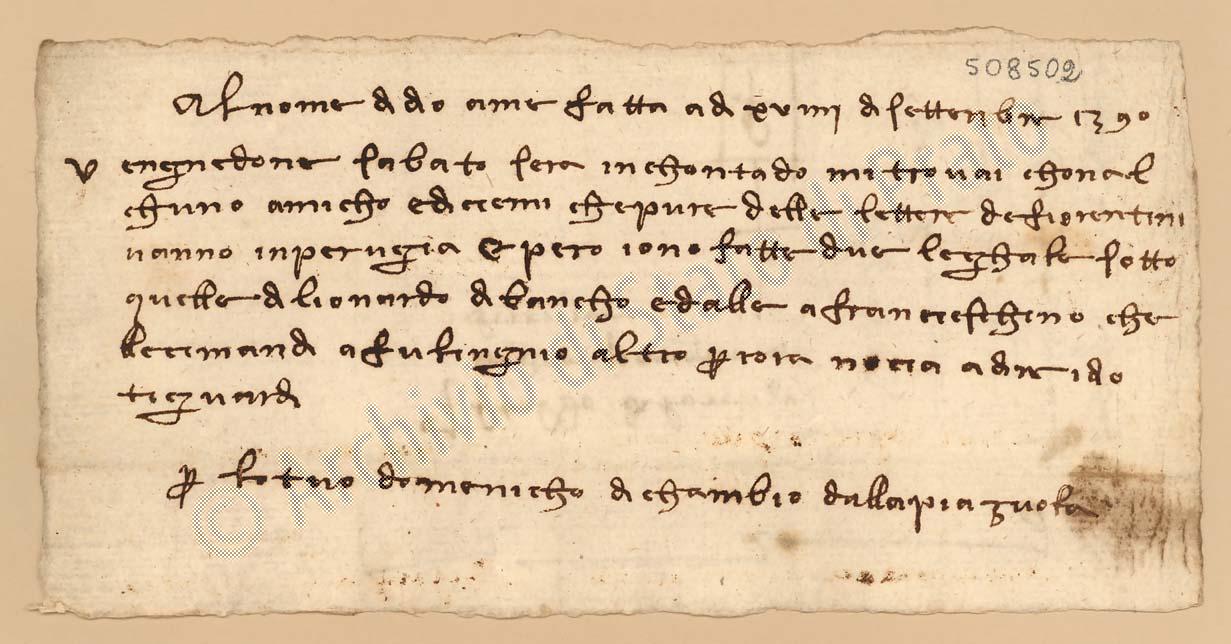 508502
Al nome di dio ame fatta adi xviiii di settenbre 1390
v
engnedone sabato sera inchontado mi trovai chonal
chuno amicho ediciemi chepure delle lettere de fiorentini
vanno inperugia E pero iono fatte due leghale sotto
quelle di lionardo di bancho edalle afranciescheno che
lle cimandi afulingnio altro per iora nocia adire idio
ti ghuardi
per lo tuo domenicho di chambio dallapiazuola
© Archivio di Stato di Prato